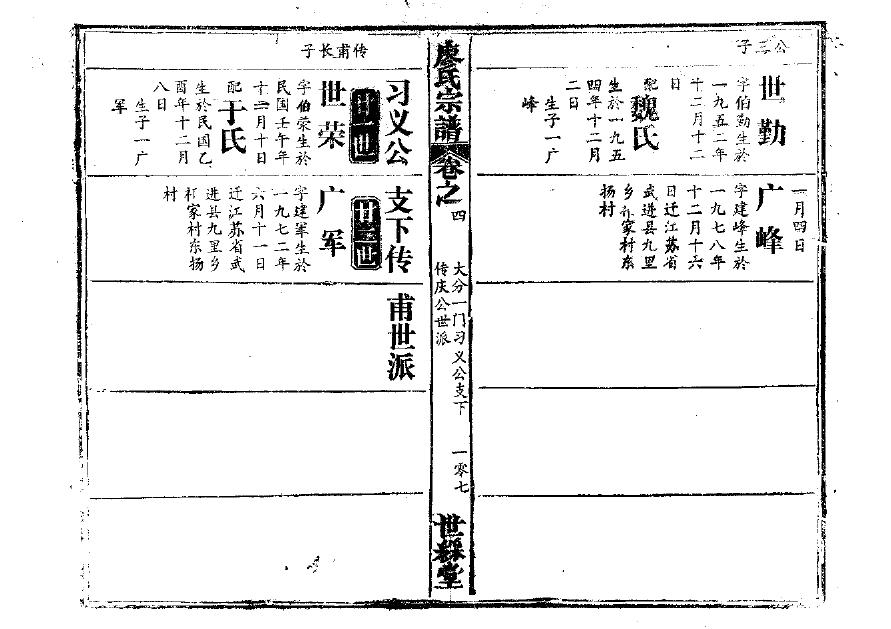 公三子
世勤
字伯勤生於
一九五二年
十二月十二
日
配魏氏
生於一九五
四年十二月
二日
生子一广
峰
一月四日
广峰
字建峰生於
一九七八年
十二月十六
日迁江苏省
武进县九里
乡祁家村东
扬村
廖氏宗譜
卷之四
大分一门习义公支下
传庆公世派
一零七
世綵堂
传甫长子
习义公
支下传
甫世派
廿一世
世荣
字伯荣生於
民国壬午年
十一月十日
配于氏
生於民国乙
酉年十二月
八日
生子一广
军
廿二世
广军
字建军生於
一九七二年
六月十一日
迁江苏省武
进县九里乡
祁家村东扬
村